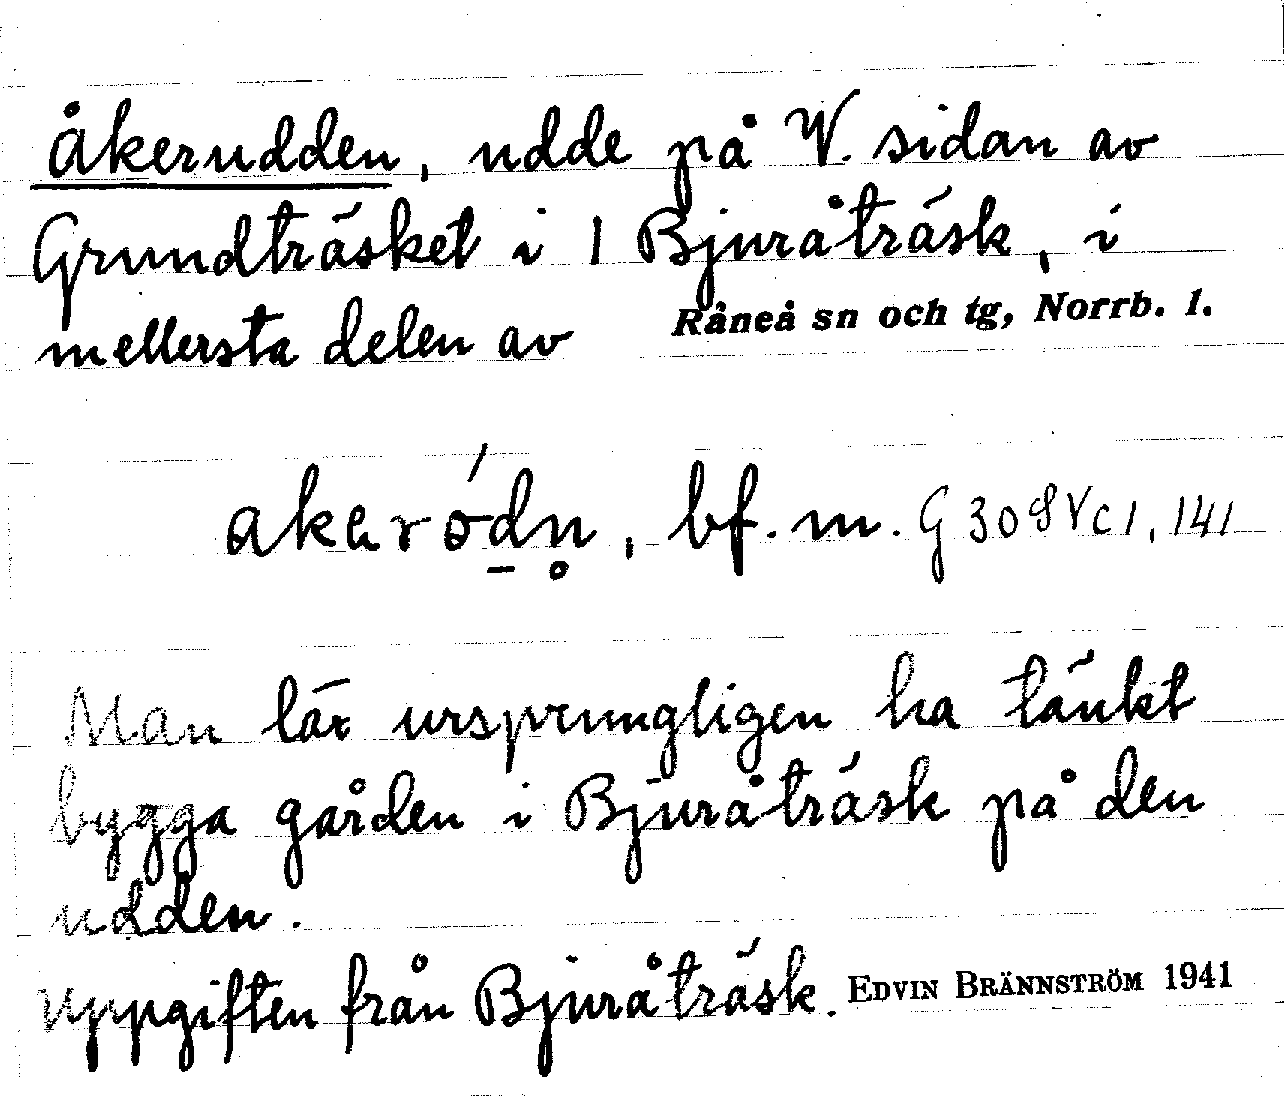 Åkerudden, udde på V. sidan av
Grundträsket i 1 Bjuråträsk, i
mellersta delen av Råneå sn och tg, Norrb. l.
akerö́dn̥, bf. m. G 308 V c 1, 141
Man lär ursprungligen ha tänkt
bygga gården i Bjuråträsk på den
udden.
Uppgiften från Bjuråträsk. EDVIN BRÄNNSTRÖM 1941